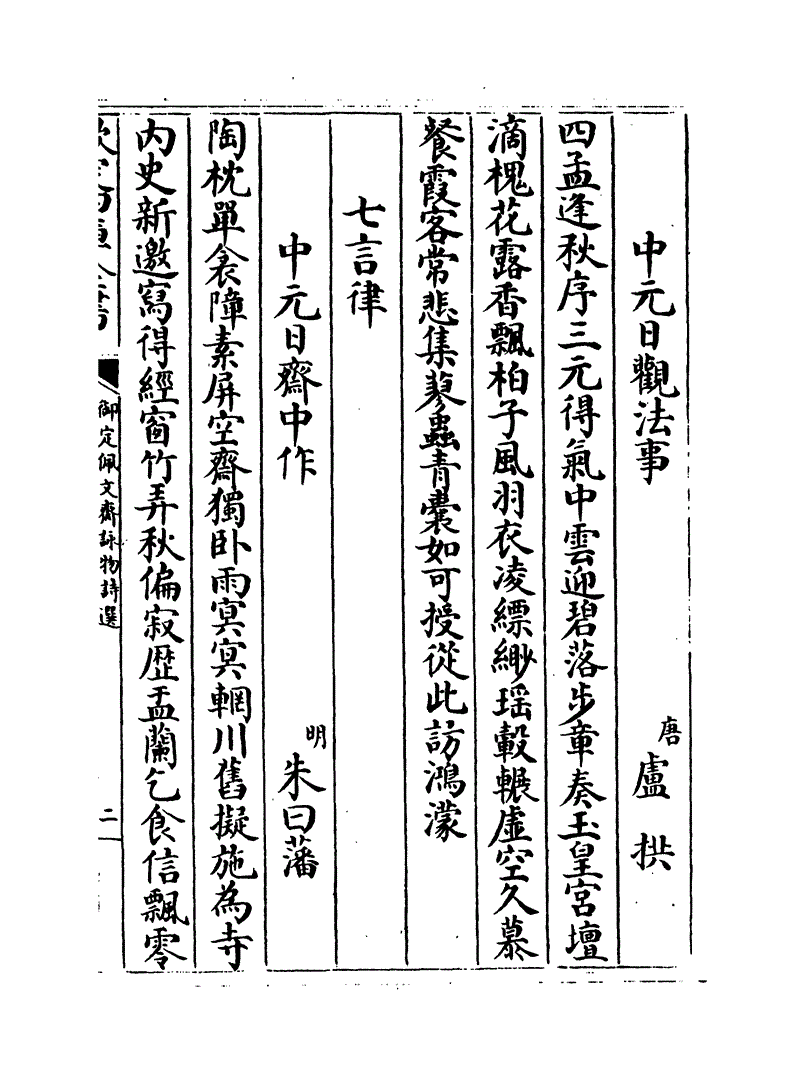 中元日觀法事　唐盧拱
四孟逢秋序三元得氣中雲迎碧落步章奏玉皇宮壇
滴槐花露香飄柏子風羽衣凌縹緲瑤轂輾虛空久慕
餐霞客常悲集蓼蟲青囊如可授從此訪鴻濛
七言律
中元日齋中作　明朱曰藩
陶枕單衾障素屏空齋獨臥雨冥冥輞川舊擬施為寺
內史新邀寫得經窗竹弄秋偏寂歷盂蘭乞食信飄零
御定佩文齋詠物詩選
二